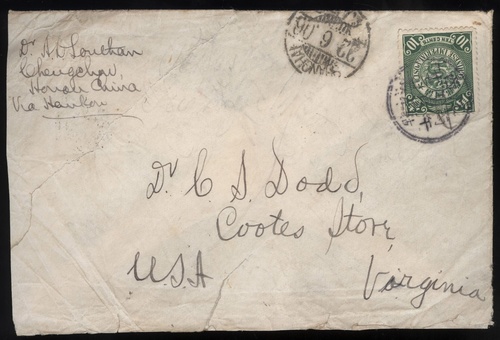 Dr. A. D. Louthan
Chengchow,
Honan China
Via Hankow
SHANGHAI
10 10
Dr. C. S. Dodd,
Cootes Store,
U.S.A Virginia